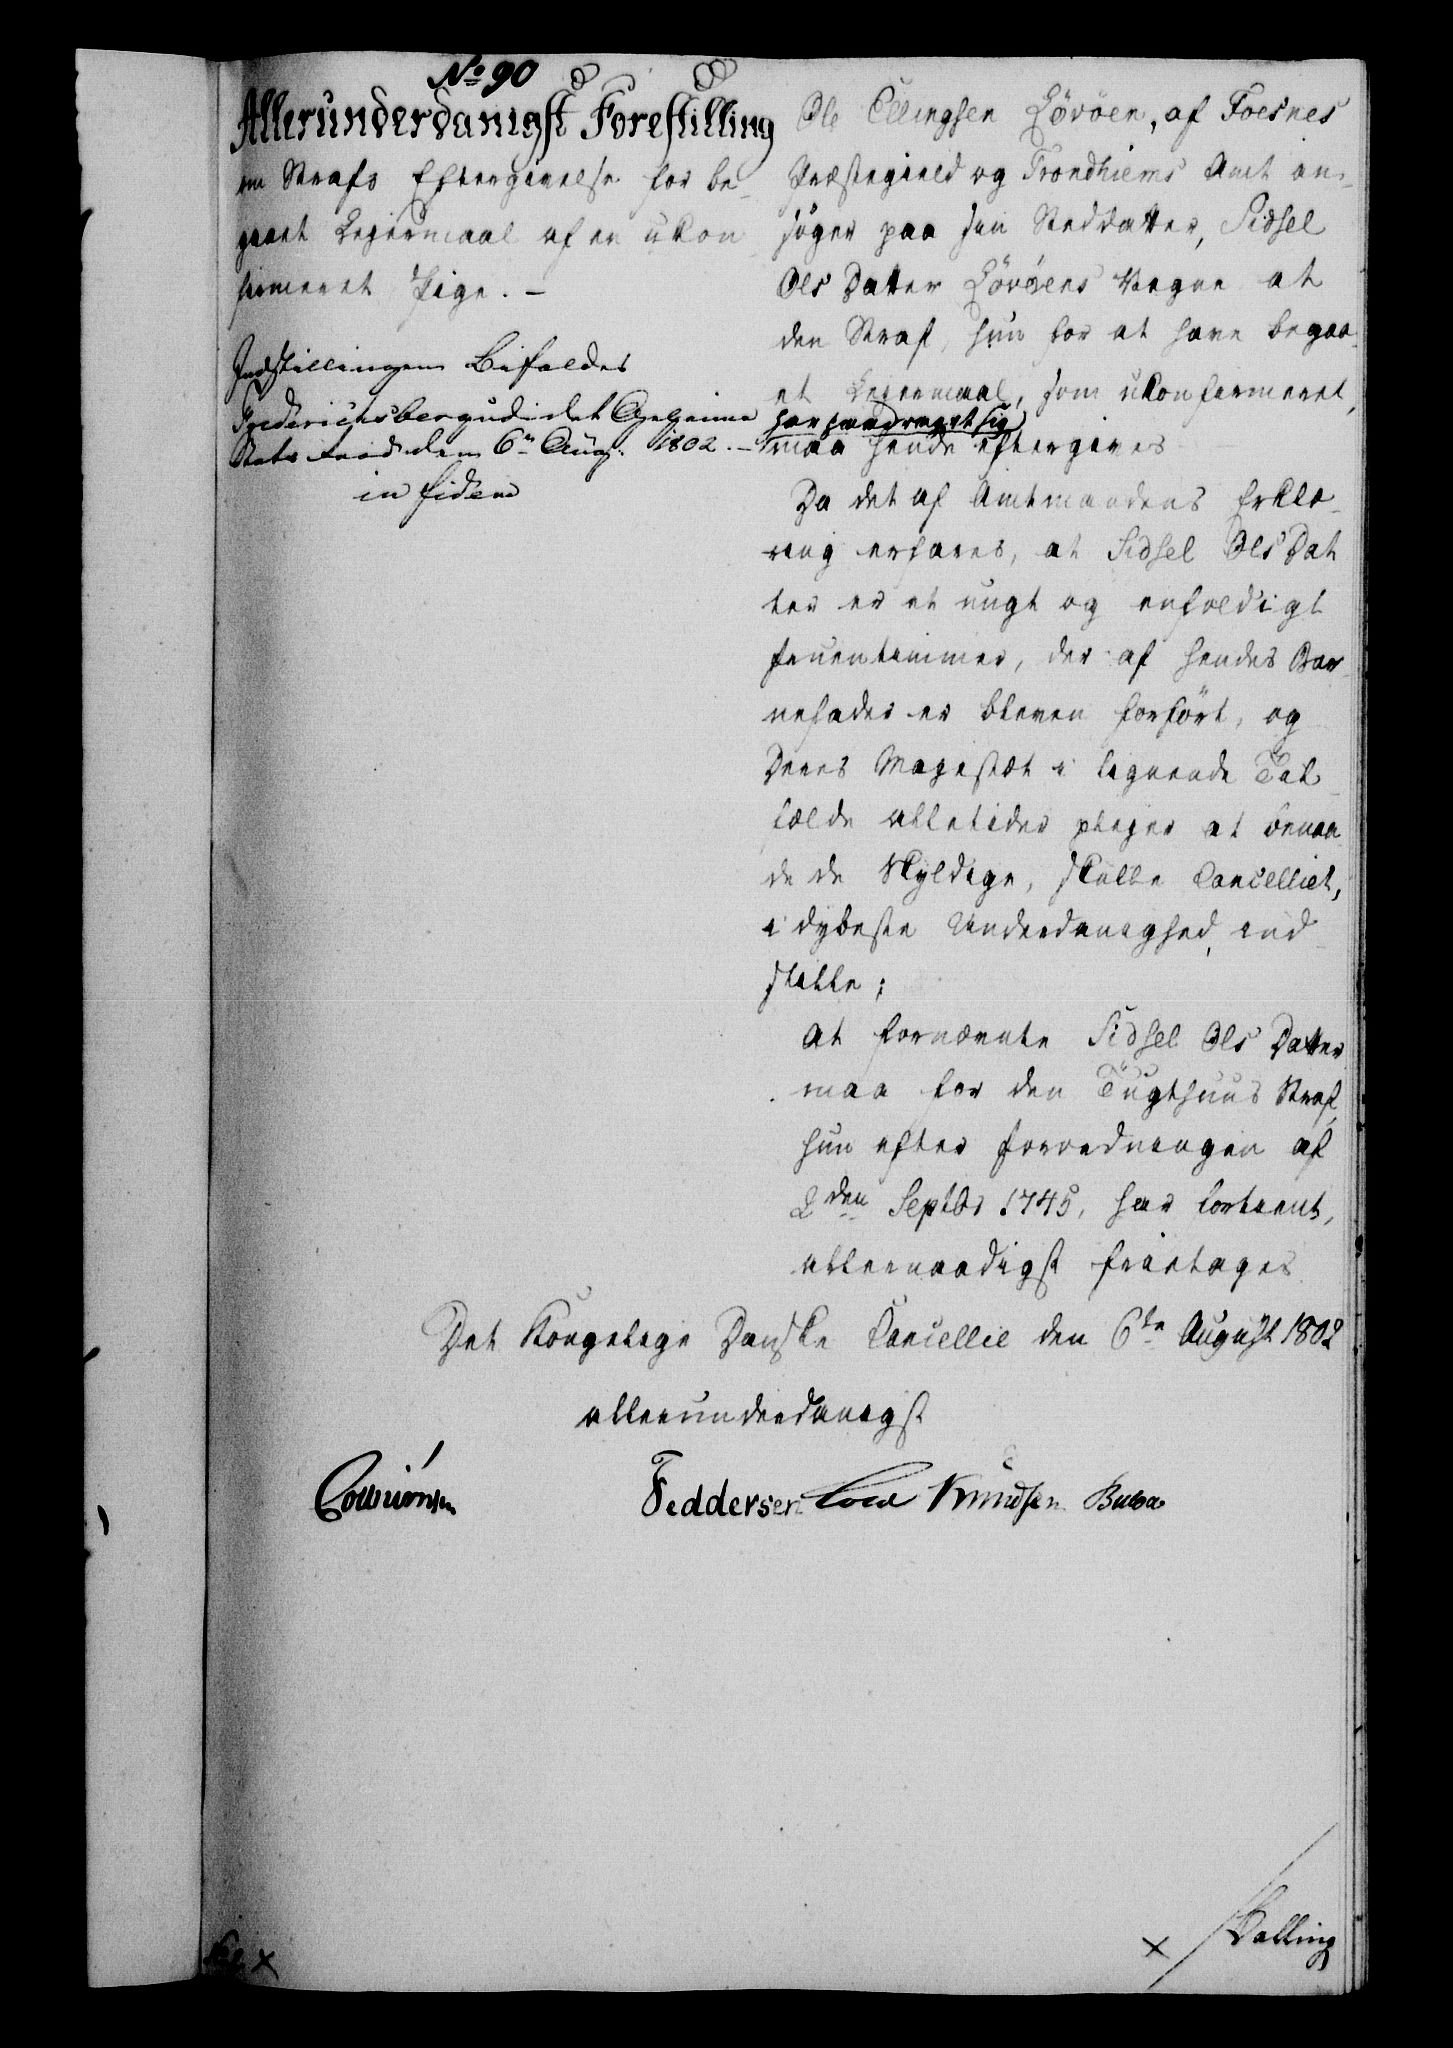 No 90
Allerunderdanigst Forestilling
om Strafs Eftergivelse for be-
gaaet Leiermaal af en ukon-
firmeret Pige. -
Indstillingen bifaldes
Frederichsberg udi det Geheime
Stats Raad den 6te Aug. 1802. -
in fidem
Ole Ellingsen Lövöen, af Foesnes
Præstegield og Trondhiems Amt an-
söger paa sin Steddatter, Sidsel
Ols Datter Lövöens Vegne at
den Straf, hun for at have begaa-
et Leiermaal, som ukonfirmeret,
har paadraget sig
maa hende eftergives
Da det af Amtmandens Erklæ-
ring erfares, at Sidsel Ols Dat
ter er et ungt og enfoldigt
Fruentimmer, der af hendes Bar-
nefader er bleven forfört, og
Deres Majestæt i lignende Til-
fælde alletider pleier at benaa-
de de Skyldige, skulle Cancelliet,
i dybeste Underdanighed, ind-
stille;
At fornævnte Sidsel Ols Datter
maa for den Tugthuus Straf,
hun efter Forordningen af
2den Septbr 1745, har fortient,
allernaadigst fritages
Det Kongelige Danske Cancellie den 6te August 1802
allerunderdanigst
Colbiörnsen
Feddersen Cold Knudsen Bülow
Skalling